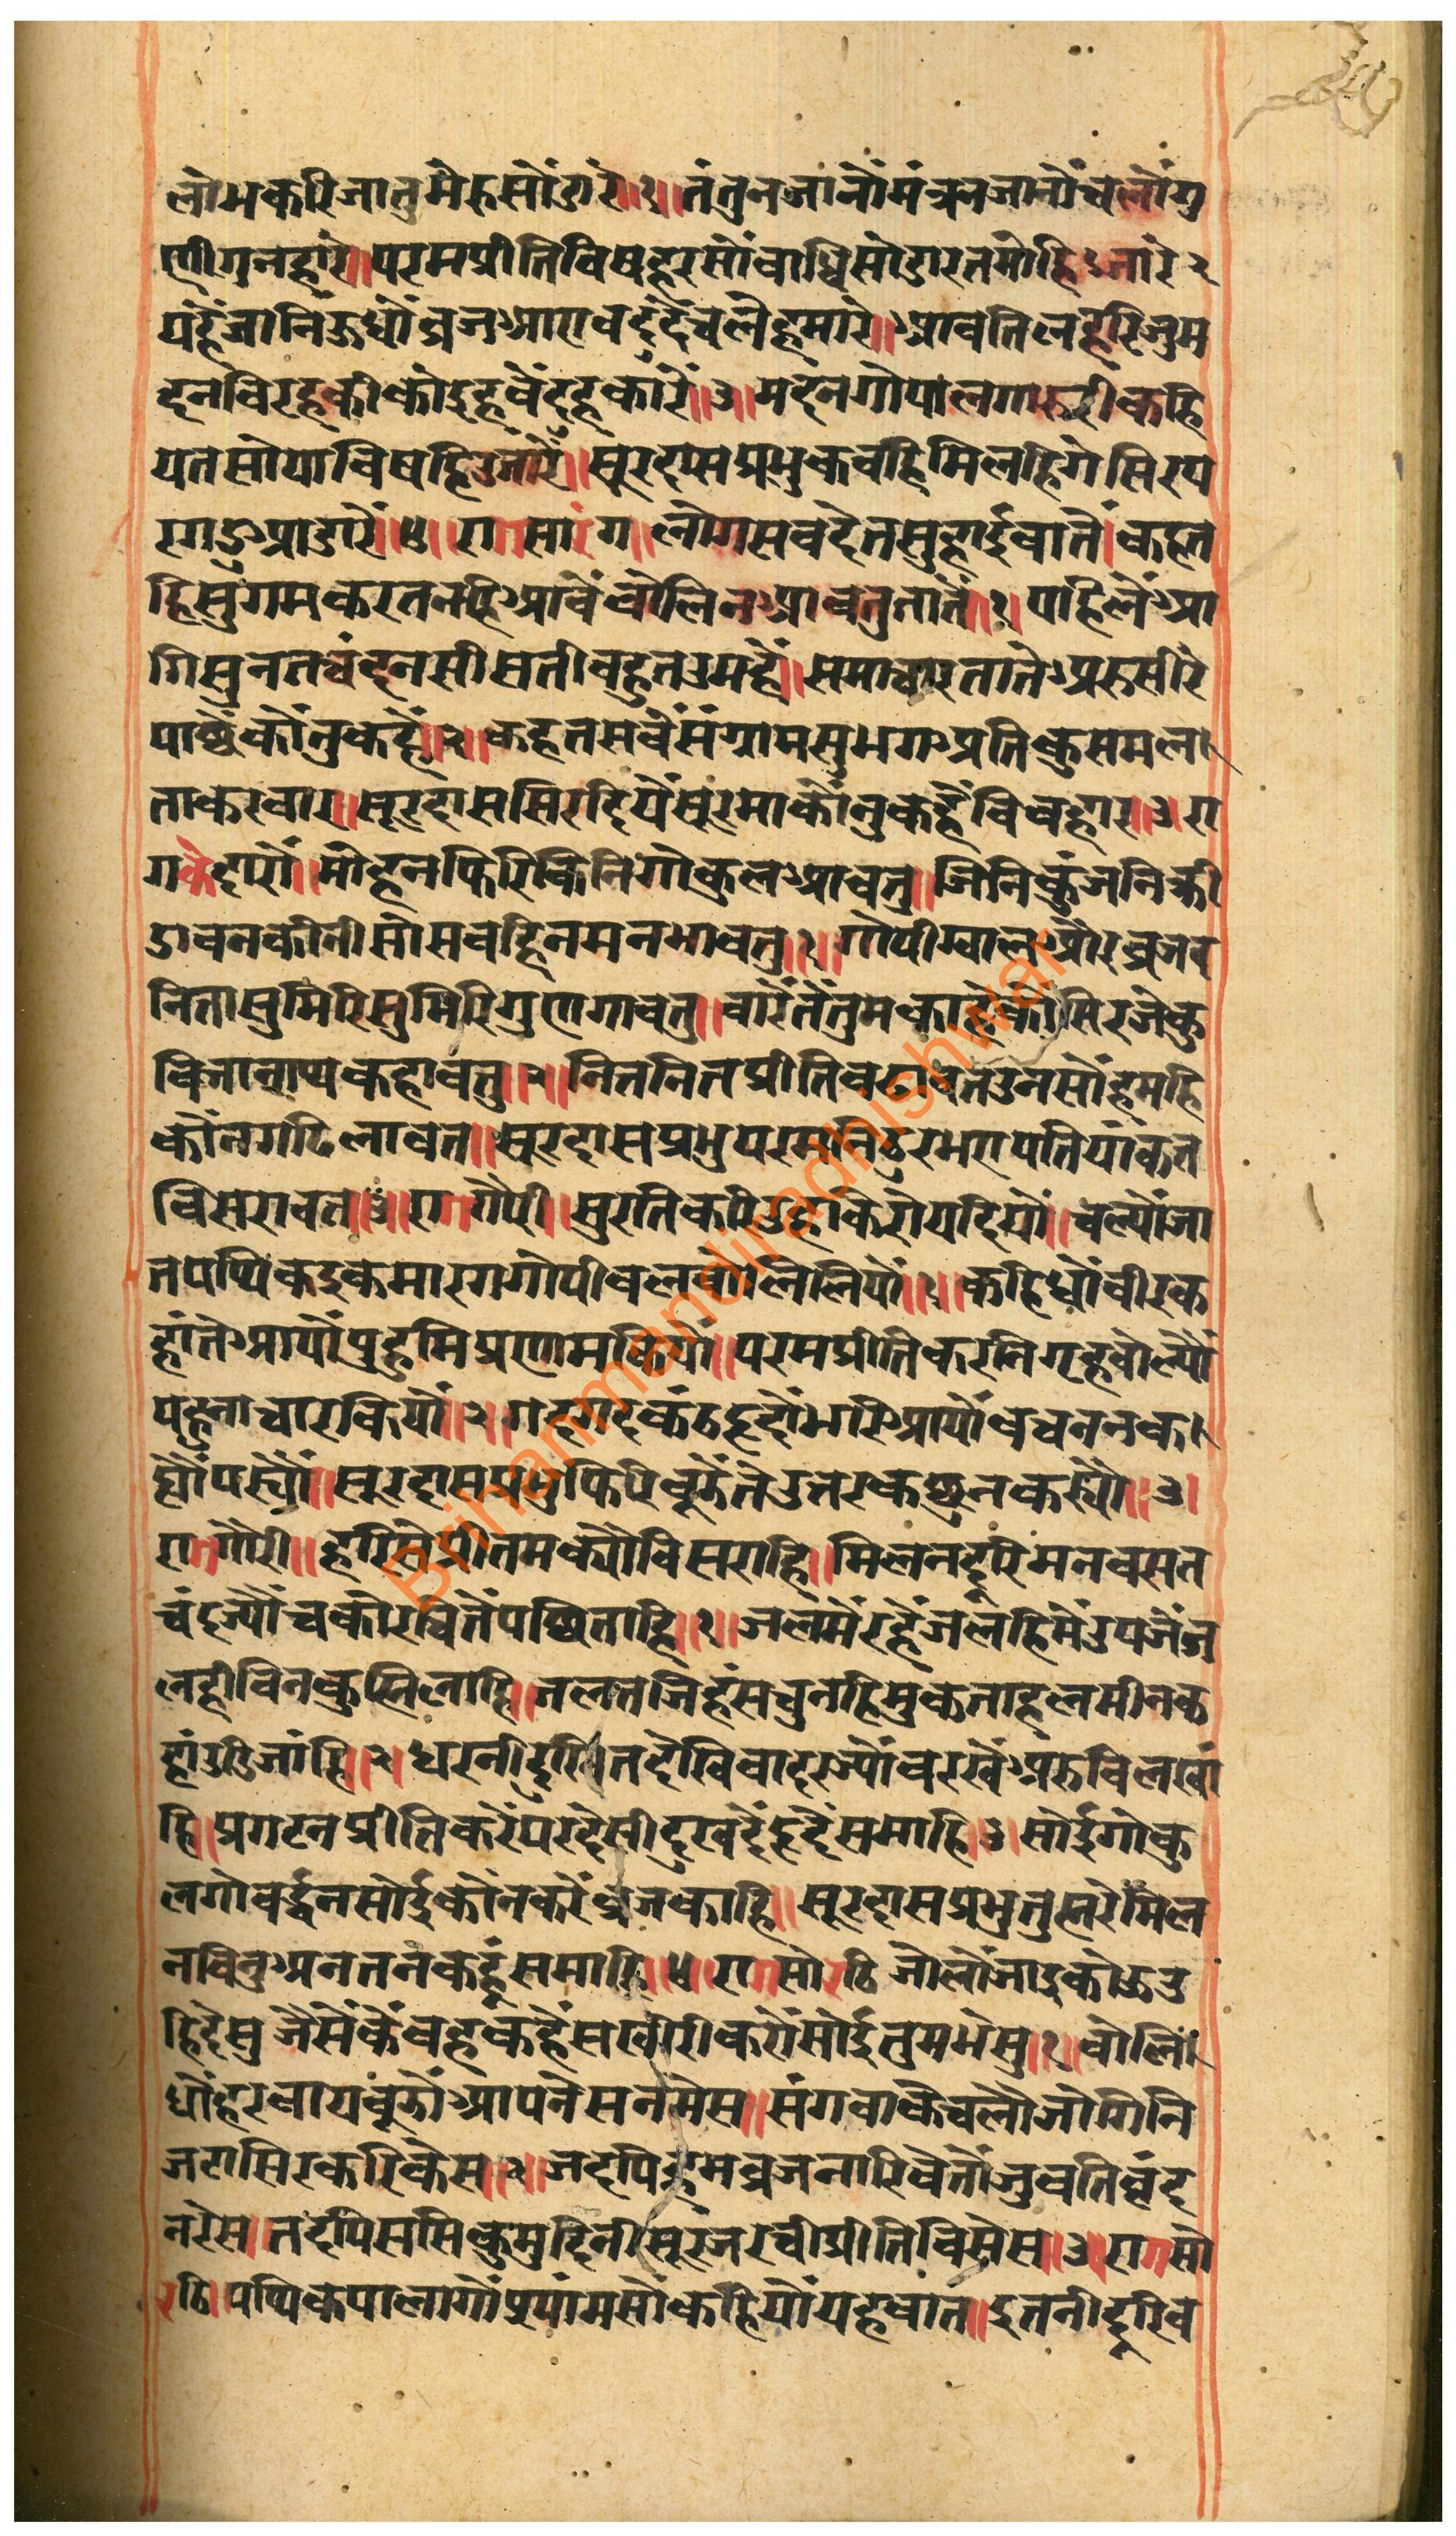 लोभकरिजातुमेरुसोंडारे॥१॥तंतुनजानोंमंत्रनजानोंचलोंगु
णीगुनहारे॥परमप्रीतिविषहरसोंबाधिसोडारतमोहिउजारे२
यहैंजानिऊधोंब्रजआएवदृदैचलेहमारे॥आवतिलहरिजुम
दनविरहकीकोइहवेंदहकारें॥३॥मदनगोपालगारुरीकहि
यतसोयाविषहिउतारें॥सूरदासप्रभुकबहिमिलहिगेसिरप
रगाडूआडारें॥४॥रागसारंग॥लोगसबदेतसुहाईबातें॥कहत
हिसुगमकरतनहिआवेंबोलिनआवतुतातें॥१॥पहिलेंआ
गिसुनतचंदनसीसतीबहुतउमहें॥समाचारतातेअरुसीरे
पाछेंकोंनुकहें॥२॥कहतसबेंसंग्रामसुभगअतिकुसमल
ताकरवार॥सूरदाससिरदियेंसूरमाकोंनुकहैंविवहार॥३॥रा
गकेदारो॥मोहनफिरिकिनिगोकुलआवतु॥जिनिकुंजनिक्री
डावनकीनीसोसबहिनमनभावतु॥१॥गोपीग्वालओरब्रजब
नितासुमिरिसुमिरिगुणगावतु॥बारेंतेंतुमकाहेकोंसिरजेकु
बिजानाथकहावतु॥२॥नितनितप्रीतिबढावतउनसोंहमहि
कोंनगढिलावत॥सूरदासप्रभुपरमनिठुरभएपतियांकत
बिसरावत॥३॥रागगौरी॥सुरतिकरिउहांकिरोयदियों॥चल्योंजा
तपथिकइकमारगगोपीबलबोलिलियों॥१॥कहिधोंबीरक
हांतेआयोंपुहमिप्रणामकियों॥परमप्रीतिकरनिगृहबोल्यों
पहुनाचारकियों॥२॥गदगदकंठहृदोंभरिआयोंबचननक
ह्योंपर्यों॥सूरदासप्रभुफिरिबूझेंतेउतरकछूनकर्यों॥३॥
रागगौरी॥हरिसेप्रीतमक्योंविसराहि॥मिलनदूरिमनबसत
चंदज्योंचकोरचितेंपछिताहि॥१॥जलमेंरहेंजलहिमेंउपजेंज
लहीबिनकुम्हिलाहि॥जलतजिहंसचुनहिमुकताहलमीनक
हांउडिजांहि॥२॥धरनीदुखितदेखिबादरज्योंबरखेंअरुबिलखां
हि॥प्रगटनप्रीतिकरेंपरदेसीदुखदेंहृदेंसमाहि॥३॥सोईगोकु
लगोवर्द्धनसोईकोनकरेंब्रजछाहि॥सूरदासप्रभुतुह्मरेमिल
नबिनुअनतनकहूंसमाहि॥४॥रागसोरठि॥जोलोंजाइकोऊउ
हिदेसु॥जैसेंकेंबहकहेंसखीरीकरोंसोईतुमभेसु॥१॥बोलि
धोंहरवायबूझोंआपनेसनमेस॥संगवाकेचलोजोगिनि
जटासिरकरिकेस॥२॥जदपिहमब्रजनारिवेतोंजुवतिबृंद
नरेस॥तदपिससिकुमुदिनीसूरजरचीप्रीतिविसेस॥३॥रागसो
रठि॥पथिकपालागोंप्रयांमसोंकहियोंयहबात॥इतनीदूरिब